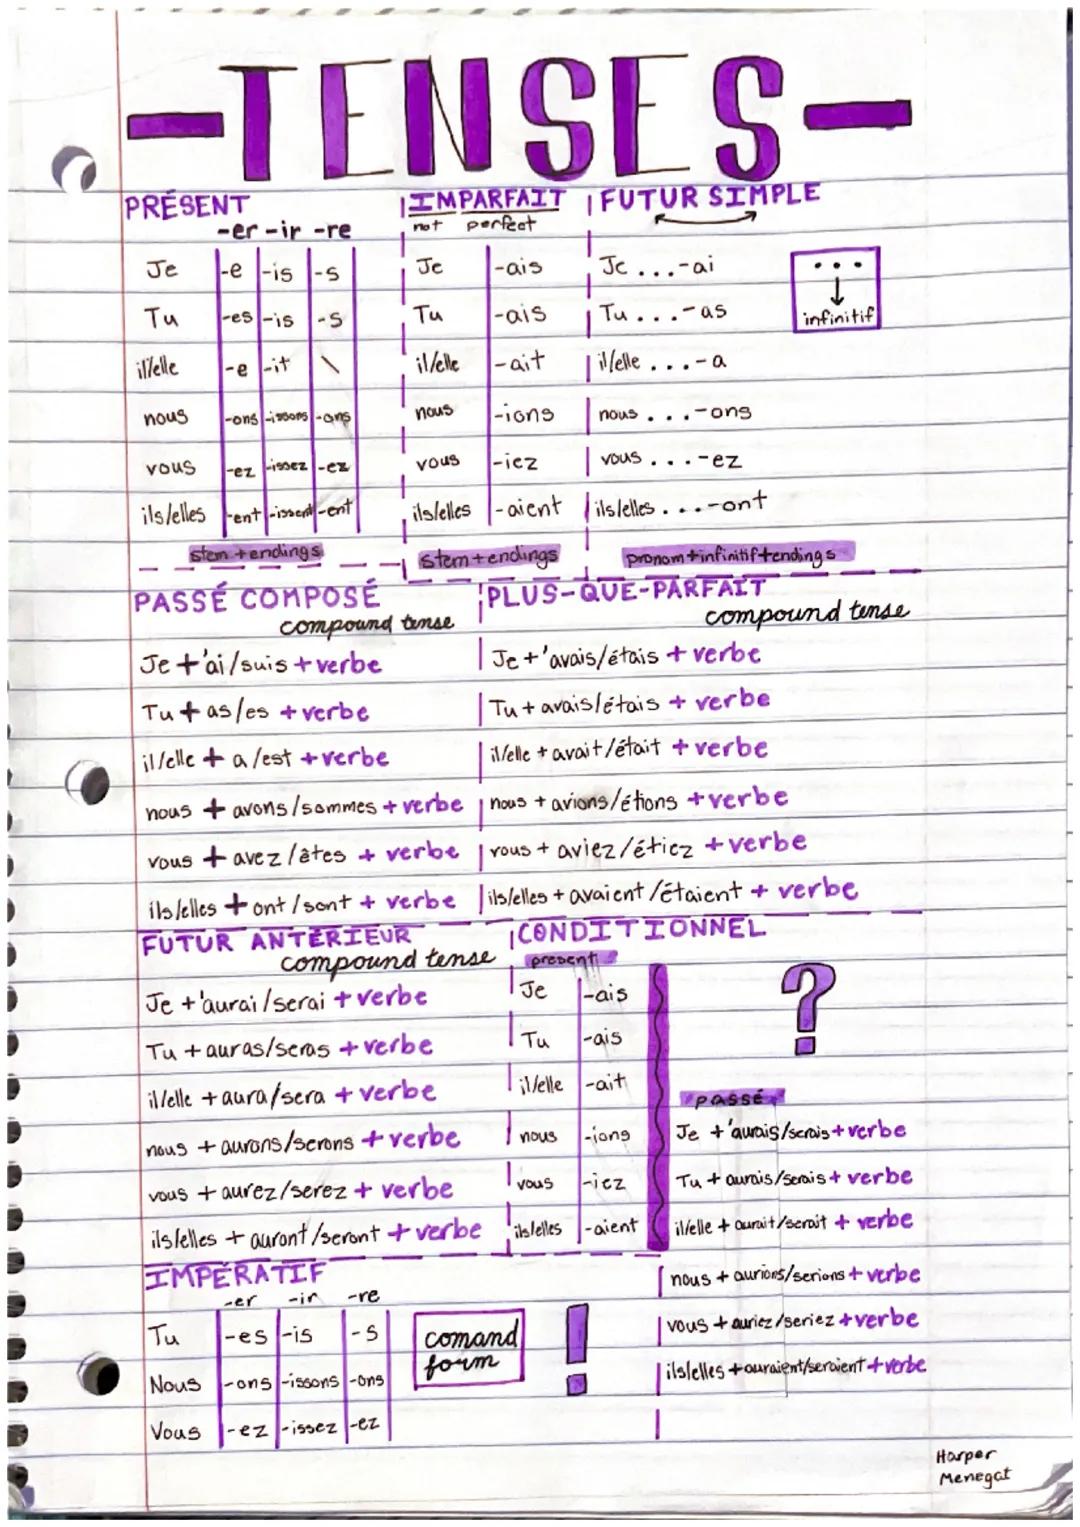 -TENSES-
PRÉSENT
-er -ir -re
Je -e -is -s
Tu -es -is -s
il/elle -e -it \
nous -ons -issons -ons
vous -ez -issez -ez
ils/elles -ent -issent -ent
stem+endings
IMPARFAIT
not perfect
Je -ais
Tu -ais
il/elle -ait
nous -ions
vous -iez
ils/elles -aient
stem+endings
FUTUR SIMPLE
Je ...-ai
Tu ...-as
il/elle ...-a
nous ...-ons
vous ...-ez
ils/elles ...-ont
...
infinitif
pronom+infinitif+endings
PASSÉ COMPOSÉ
compound tense
Je +'ai/suis + verbe
Tu + as/es + verbe
il/elle + a/est + verbe
nous + avons/sommes + verbe
vous + avez/êtes + verbe
ils/elles + ont/sont + verbe
PLUS-QUE-PARFAIT
compound tense
Je +'avais/étais + verbe
Tu + avais/étais + verbe
il/elle + avait/était + verbe
nous + avions/étions + verbe
vous + aviez/étiez + verbe
ils/elles + avaient/étaient + verbe
FUTUR ANTÉRIEUR
compound tense
Je +'aurai/serai + verbe
Tu + auras/seras + verbe
il/elle + aura/sera + verbe
nous + aurons/serons + verbe
vous + aurez/serez + verbe
ils/elles + auront/seront + verbe
CONDITIONNEL
present
Je -ais
Tu -ais
il/elle -ait
nous -ions
vous -iez
ils/elles -aient
?
passé
Je +'aurais/serais + verbe
Tu + aurais/serais + verbe
il/elle + aurait/serait + verbe
nous + aurions/serions + verbe
vous + auriez/seriez + verbe
ils/elles + auraient/seraient + verbe
IMPÉRATIF
-er -ir -re
Tu -es -is -s
Nous -ons -issons -ons
Vous -ez -issez -ez
comand
form
!
Harper
Menegat